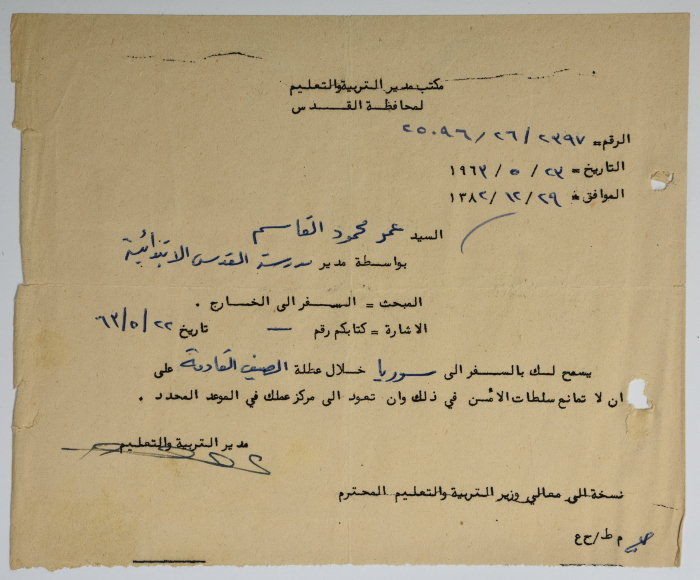 مكتب مدير التربية والتعليم
لمحافظة القدس
الرقم = ٢٣٩٧ / ٢٦ / ٢٥٠٩٦
التاريخ = ٢٣ / ٥ / ١٩٦٣
الموافق = ٢٩ / ١٢ / ١٣٨٢
السيد عمر محمود القاسم
بواسطة مدير مدرسة القدس الابتدائية
المبحث = السفر الى الخارج .
الاشارة = كتابكم رقم — تاريخ ٢٢ / ٥ / ٦٣
يسمح لك بالسفر الى سوريا خلال عطلة الصيف القادمة على
ان لا تمانع سلطات الأمن في ذلك وان تعود الى مركز عملك في الموعد المحدد .
مدير التربية والتعليم
نسخة الى معالي وزير التربية والتعليم المحترم
م ط/ح ع